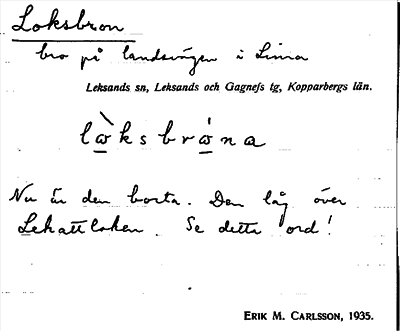 Loksbron
bro på landsvägen i Lima
Leksands sn, Leksands och Gagnefs tg, Kopparbergs län.
lòksbròna
Nu är den borta. Den låg över
Lekattloken. Se detta ord!
ERIK M. CARLSSON, 1935.